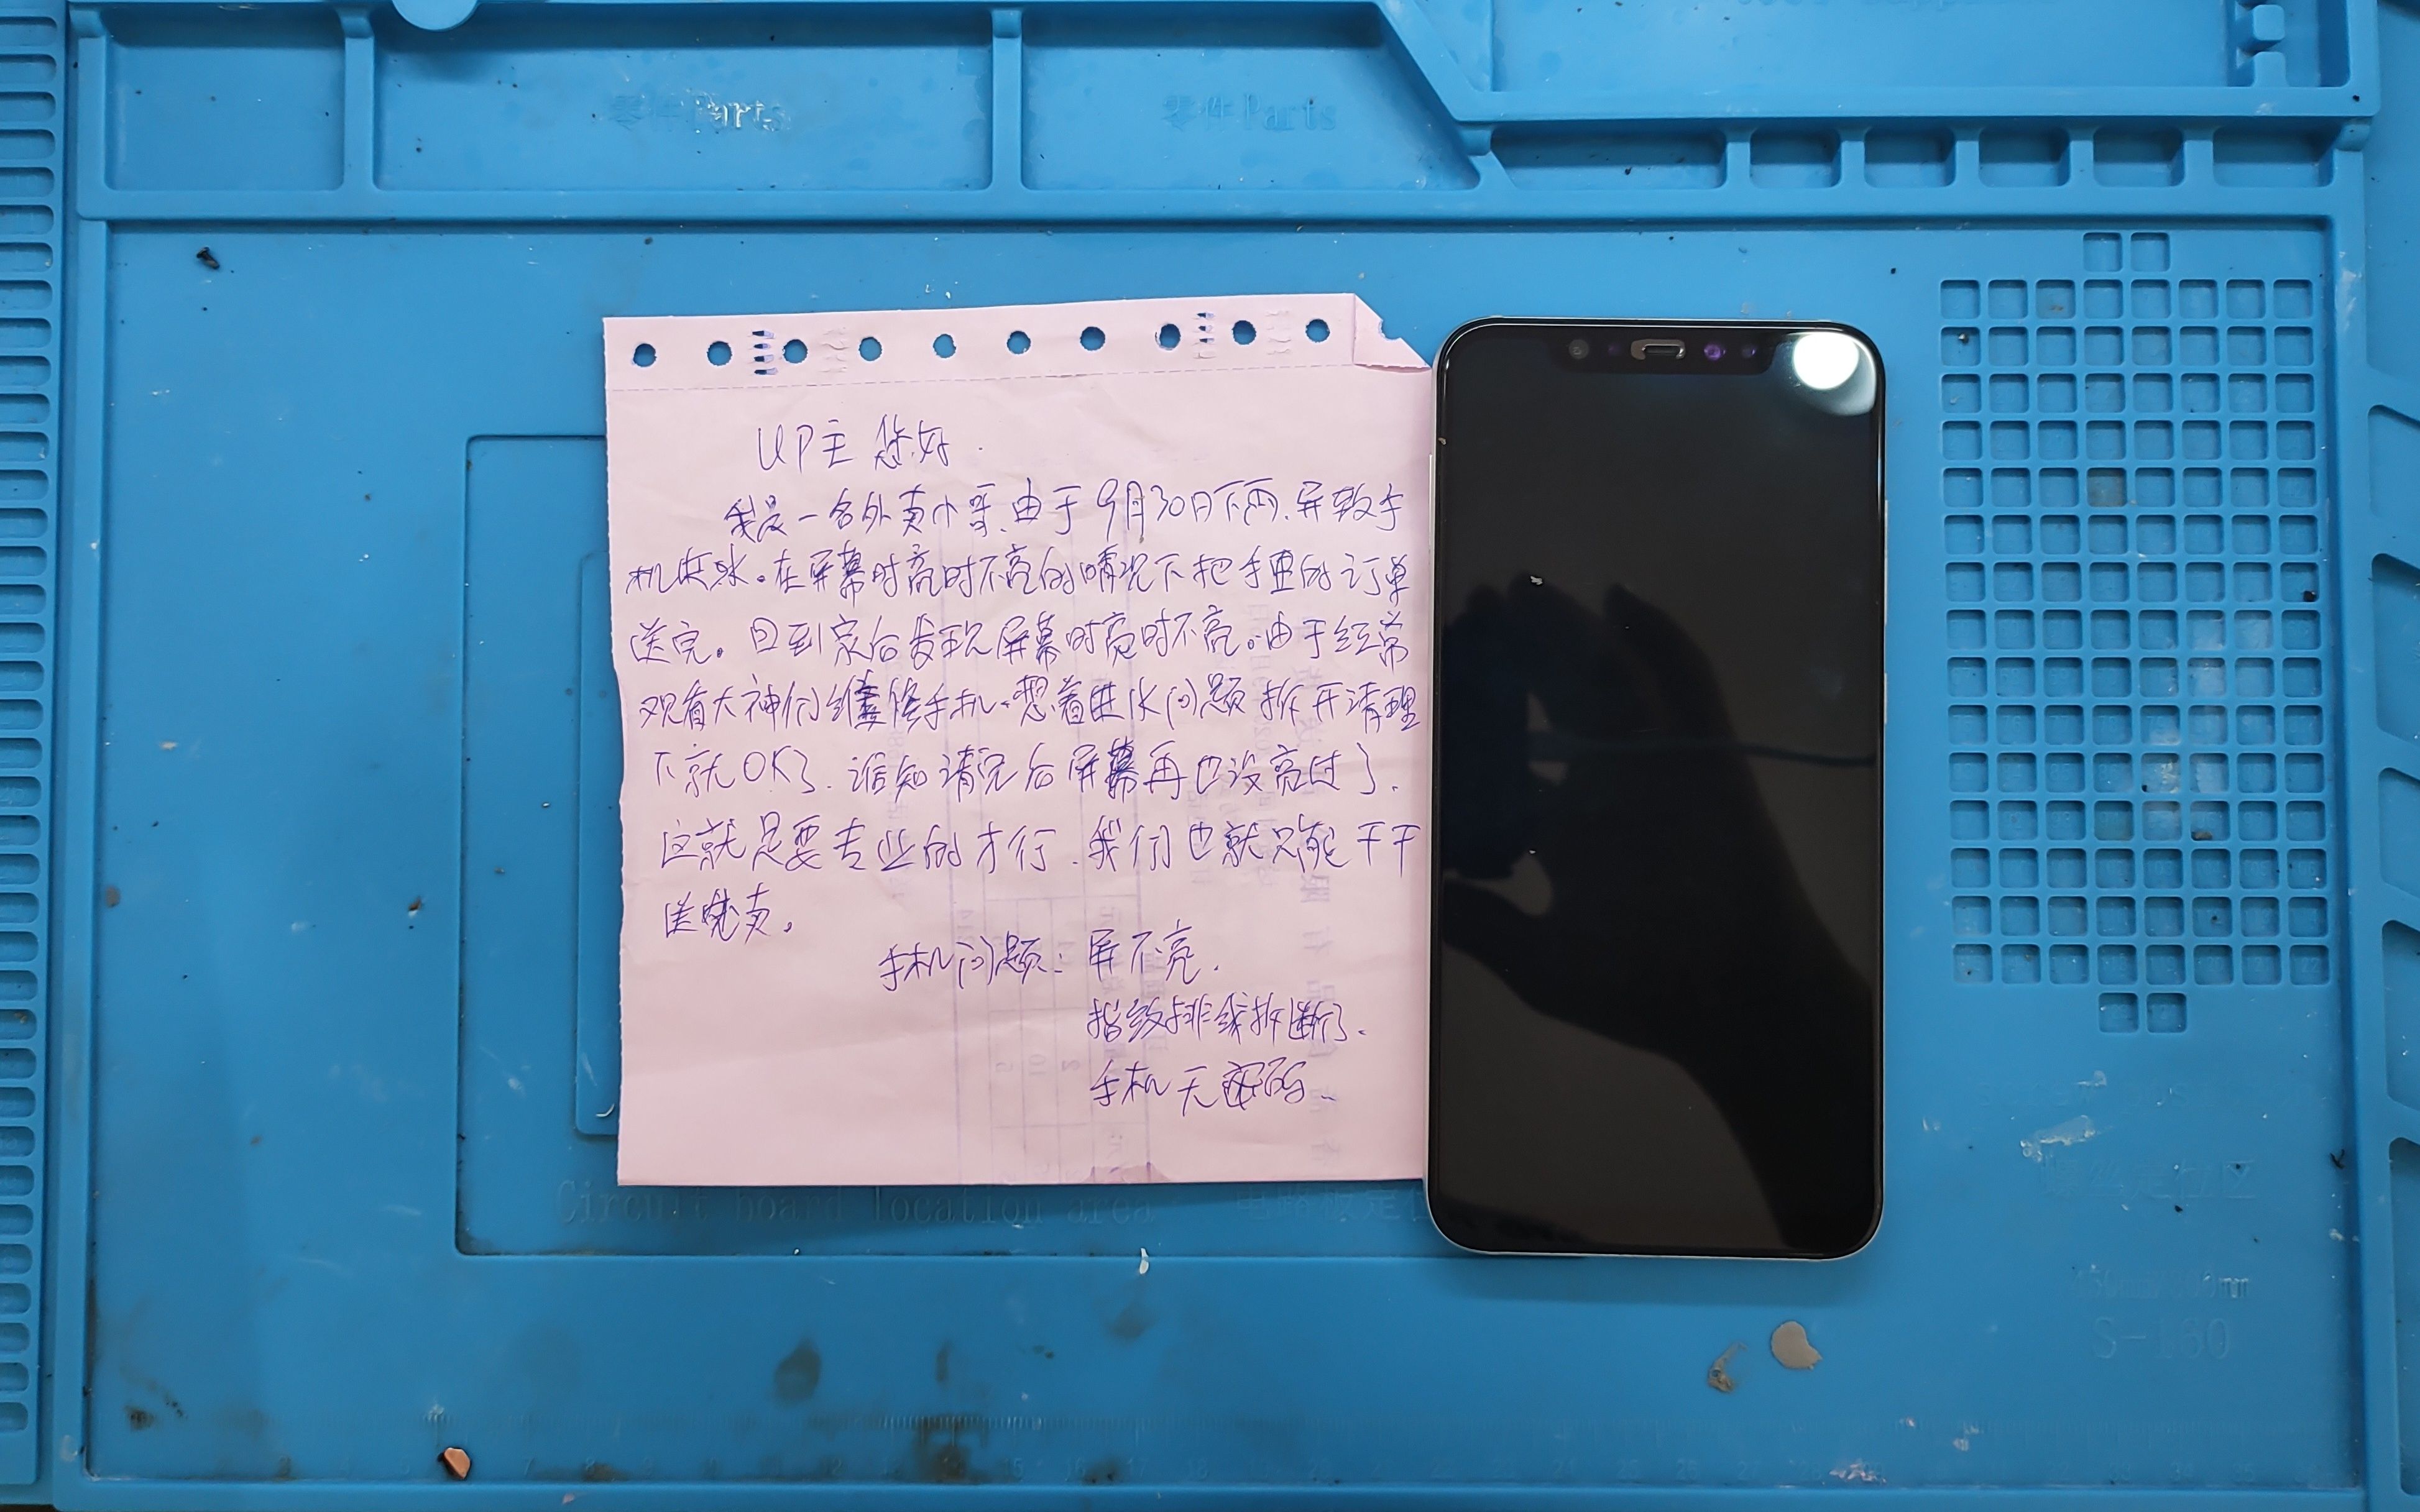 零件 Parts
零件 Parts
UP主 您好.
我是一名外卖小哥.由于9月30日下雨.导致手
机进水。在屏幕时亮时不亮的情况下把手里的订单
送完。回到家后发现屏幕时亮时不亮。由于经常
观看大神们维修手机.想着进水问题拆开清理
下就OK了.谁知清完后屏幕再也没亮过了.
这就是要专业的才行.我们也就只能干干
送外卖。
手机问题: 屏不亮.
指纹排线拆断了.
手机无密码.
Circuit board location area 电路板定位
螺丝定位区
450mm*300mm
S-160